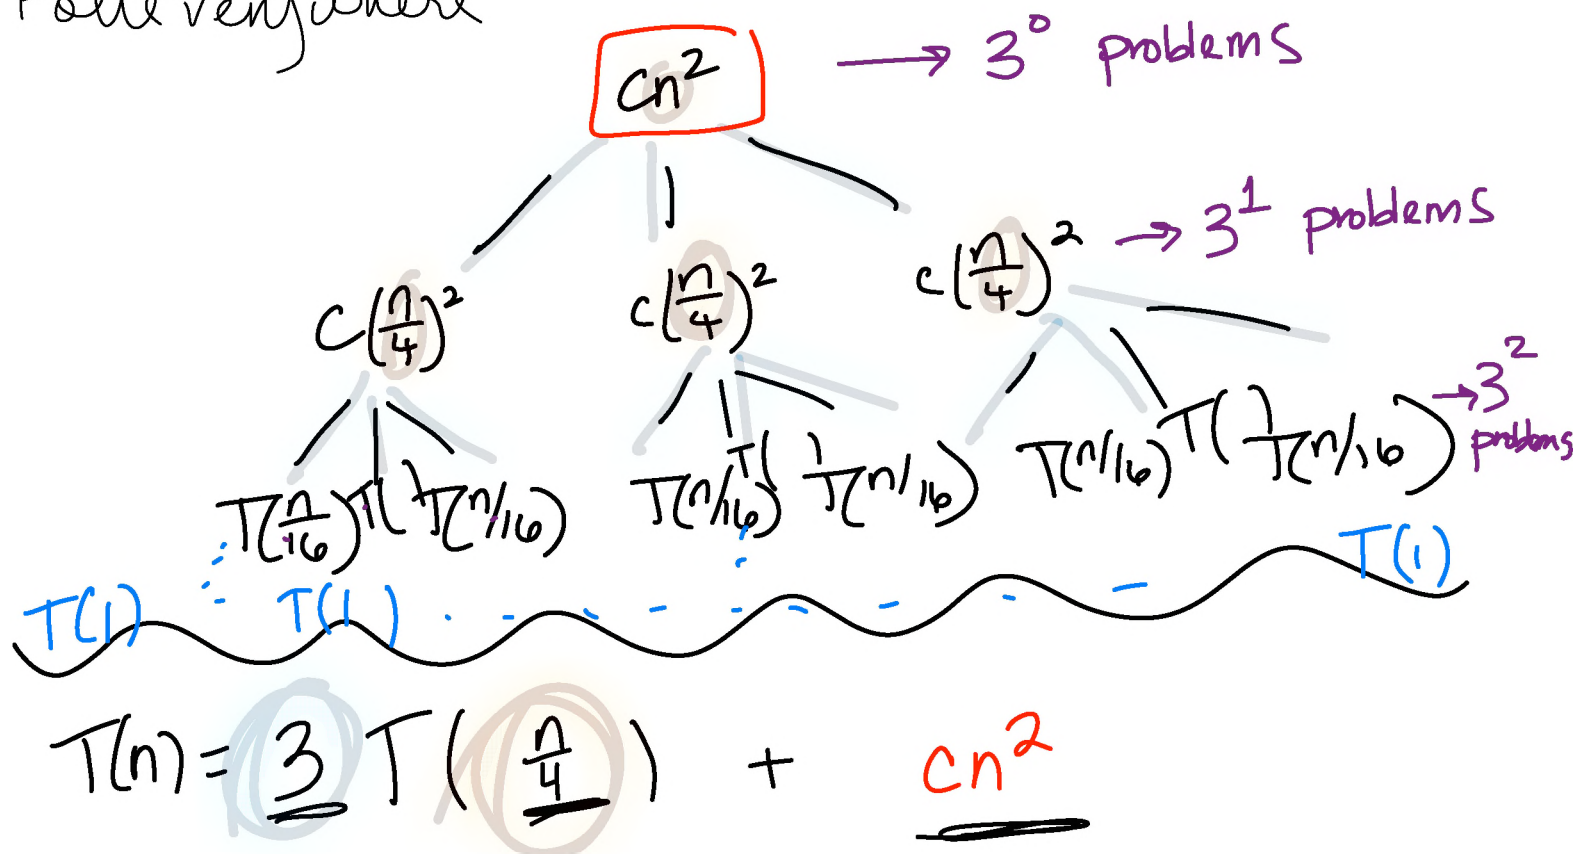 Poll everywhere
cn² → 3⁰ problems
c(n/4)² c(n/4)² c(n/4)² → 3¹ problems
T(n/16) T( ) T(n/16) T(n/16) T( ) T(n/16) T(n/16) T( ) T(n/16) → 3² problems
T(1) T(1) T(1)
T(n) = 3 T(n/4) + cn²